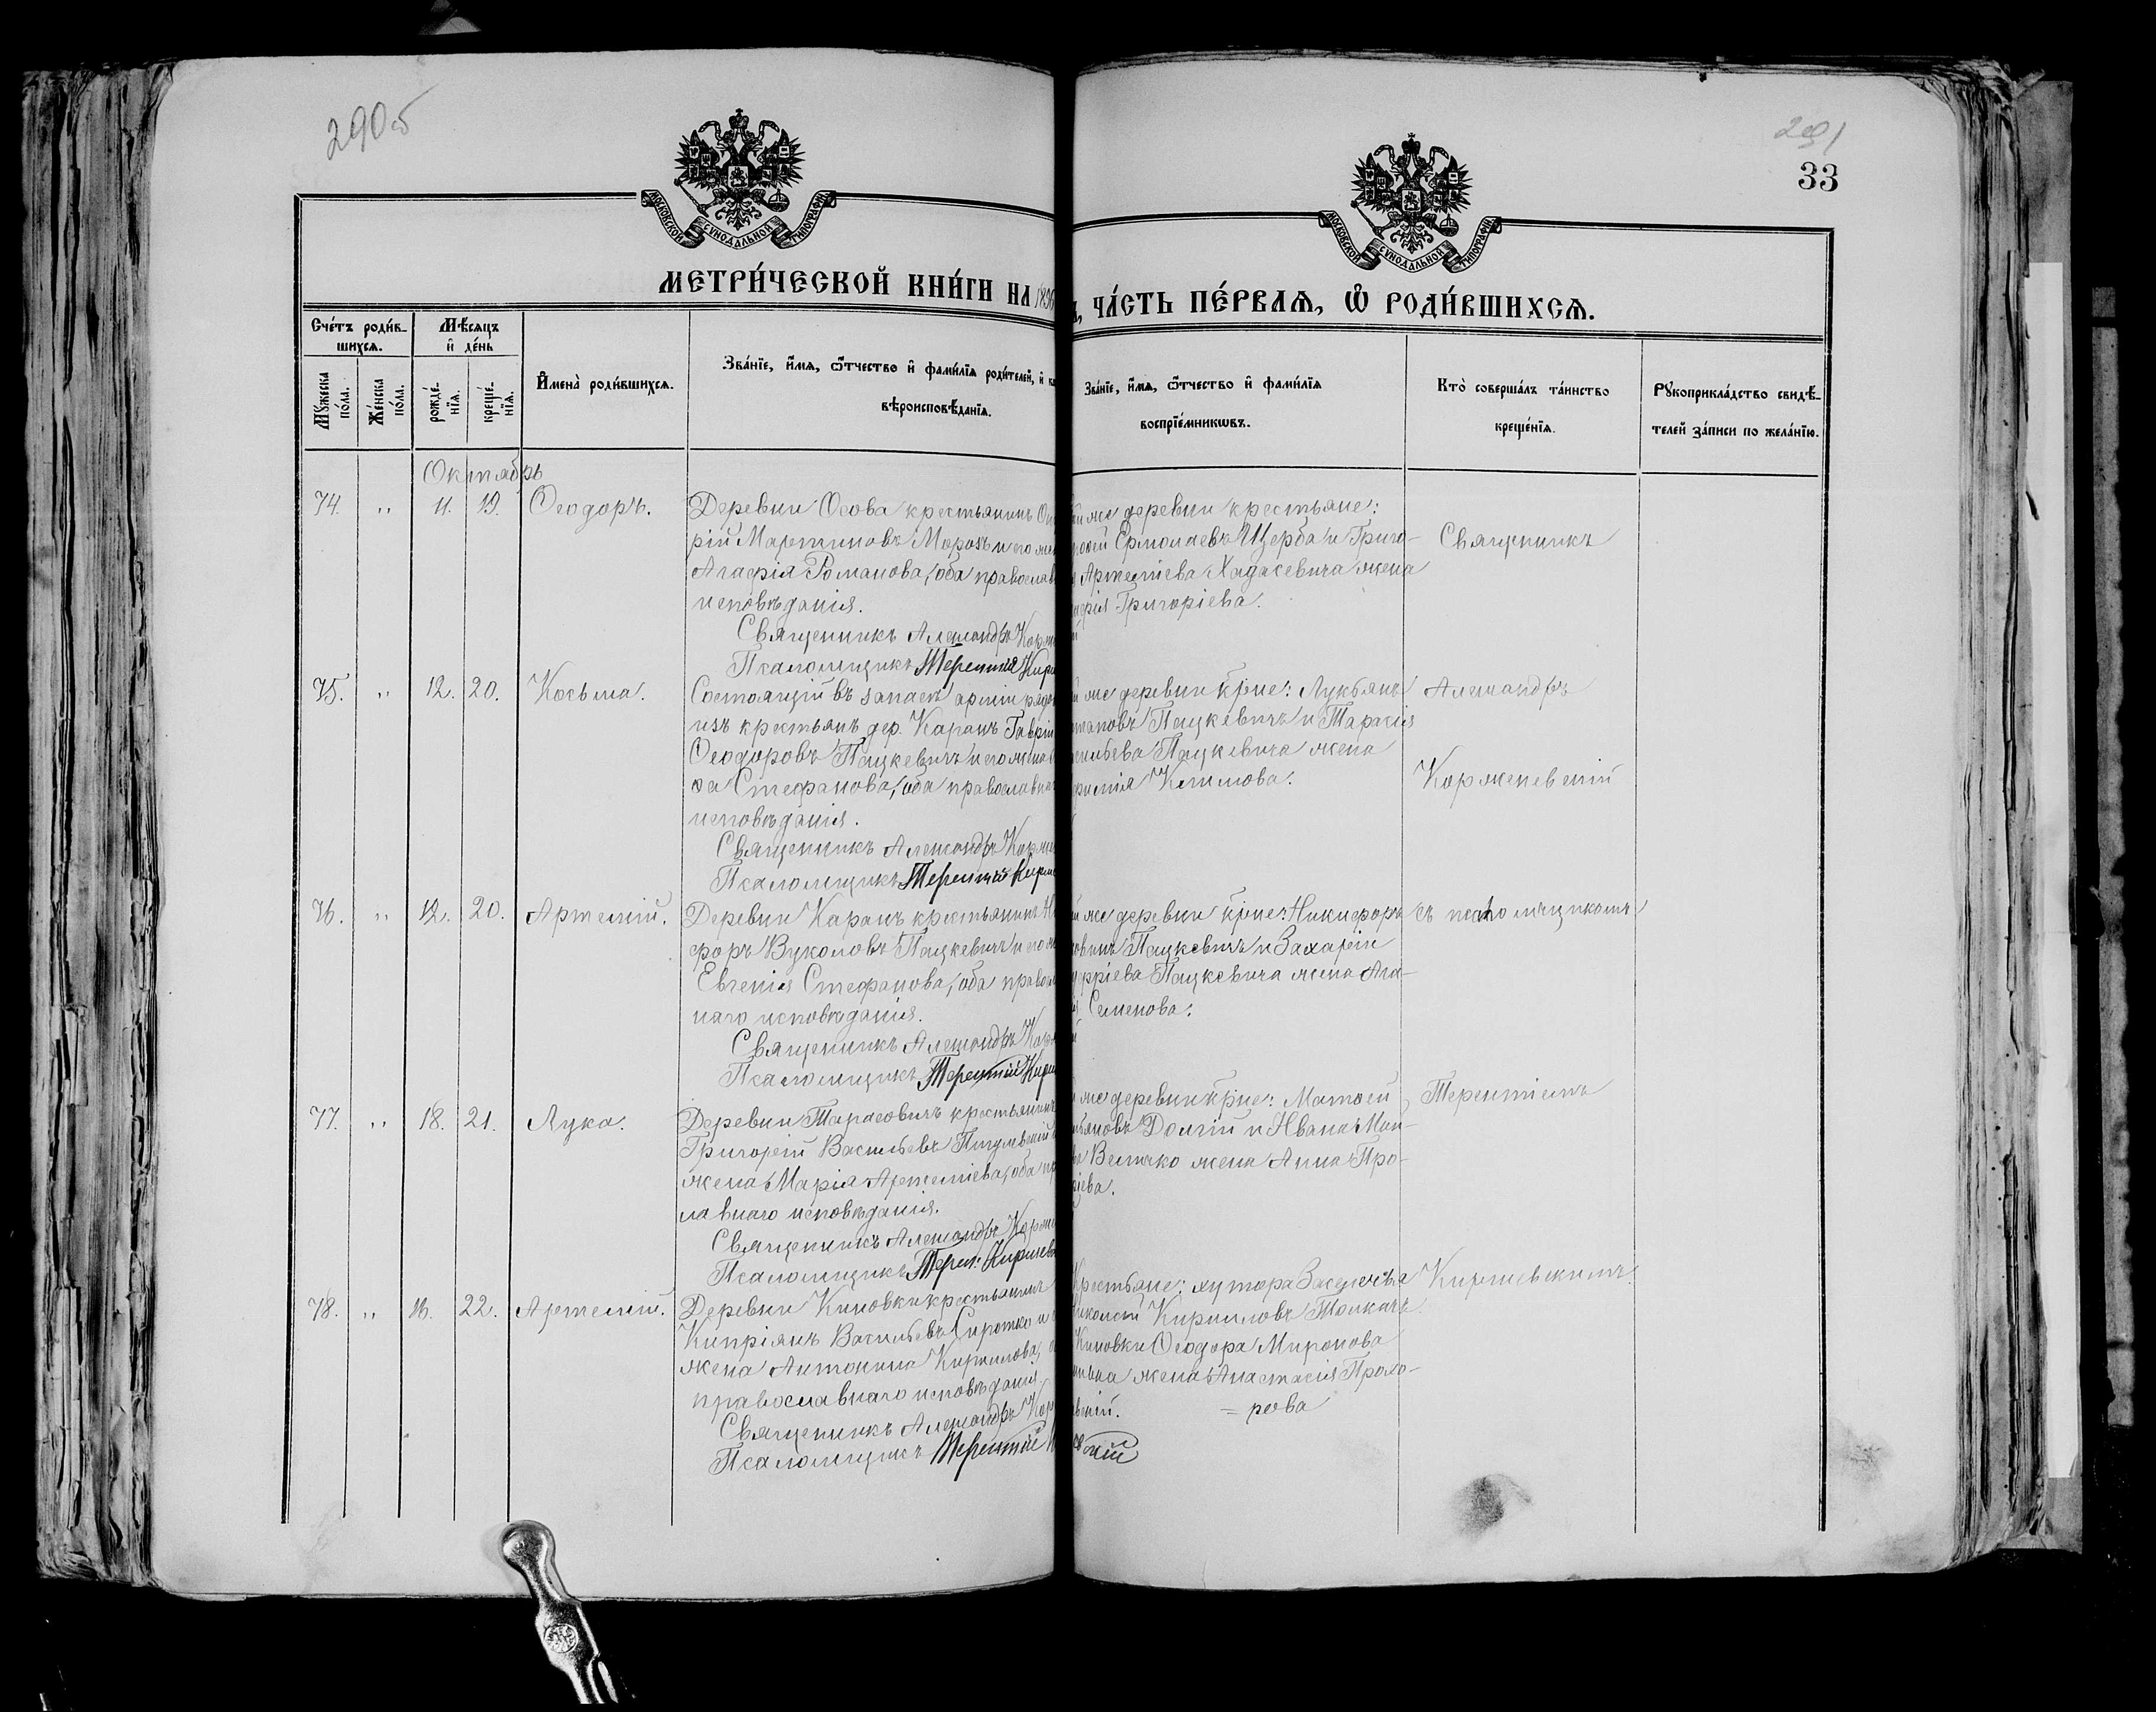 290об
291
33
МОСКОВСКОЙ СѴНОДАЛЬНОЙ ТИПОГРАФІИ
МОСКОВСКОЙ СѴНОДАЛЬНОЙ ТИПОГРАФІИ
МЕТРИ́ЧЕСКОЙ КНИ́ГИ НА 1896
ЧА́СТЬ ПЕ́РВАЯ, Ѡ РОДИ́ВШИХСЯ.
Сче́тъ роди́в-
шихся.
Мѣ́сяцъ
и де́нь
Мꙋ́жеска по́ла.
Же́нска по́ла.
рожде́-
нїя.
креще́-
нїя.
Имена̀ роди́вшихся.
Зва́нїе, и́мя, ѻ́тчество и фами́лїя роди́телей, и
вѣроисповѣ́данїя.
Зва́нїе, и́мя, ѻ́тчество и фами́лїя
воспрїе́мникѡвъ.
Кто̀ соверша́лъ та́инство
креще́нїя.
Рꙋкоприкла́дство свидѣ́-
телей за́писи по жела́нїю.
Октябрь
74. " 11. 19. Ѳеодоръ.
Деревни Осова крестьянинъ
рій Мартиновъ Морозъ и его
Агафія Романова, оба православ
исповѣданія.
Священникъ Александръ Корже
Псаломщикъ Терентій Кирш
же деревни крестьяне:
Ермолаевъ Щерба и Григо-
Артемієва Хадасевича жена
Григоріева.
Священникъ
75. " 12. 20. Косьма.
Состоящій въ запасѣ арміи рядо
изъ крестьянъ дер. Каранъ Гаврі
Ѳеодоровъ Пацкевичъ и его жена
Стефанова, оба православна
исповѣданія.
Священникъ Александръ Корже
Псаломщикъ Терентій Кирш
же деревни кр̃не: Лукьянъ
Пацкевичъ и Тарасія
Пацкевича жена
Климова.
Александръ
Корженевскій
76. " 12. 20. Артемій.
Деревни Каранъ крестьянинъ Ни
форъ Вуколовъ Пацкевичъ и его ж
Евгенія Стефанова, оба правосл
наго исповѣданія.
Священникъ Александръ Корж
Псаломщикъ Терентій Кирш
же деревни кр̃не: Никифоръ
Пацкевичъ и Захарій
Пацкевича жена Ага-
Семенова.
съ псаломщикомъ
77. " 18. 21. Лука.
Деревни Тарасовичъ крестьянинъ
Григорій Васильевъ
жена Марія Артеміева, оба пр
лавнаго исповѣданія.
Священникъ Александръ Корже
Псаломщикъ Терен: Киршев
же деревни кр̃не: Матѳей
Долгій и Ивана Мои-
Величко жена Анна Про-
Терентіемъ
78. " 16. 22. Артемій.
Деревни Киновки крестьянинъ
Кипріянъ Васильевъ Сиротко и
жена Антонина Кирилова,
православнаго исповѣданія
Священникъ Александръ Кор
Псаломщикъ Терентій
Крестьяне: хутора
Кирилловъ Толкачъ
Киновки Ѳеодора Миронова
жена Анастасія Прохо-
= рова
Киршевскимъ.